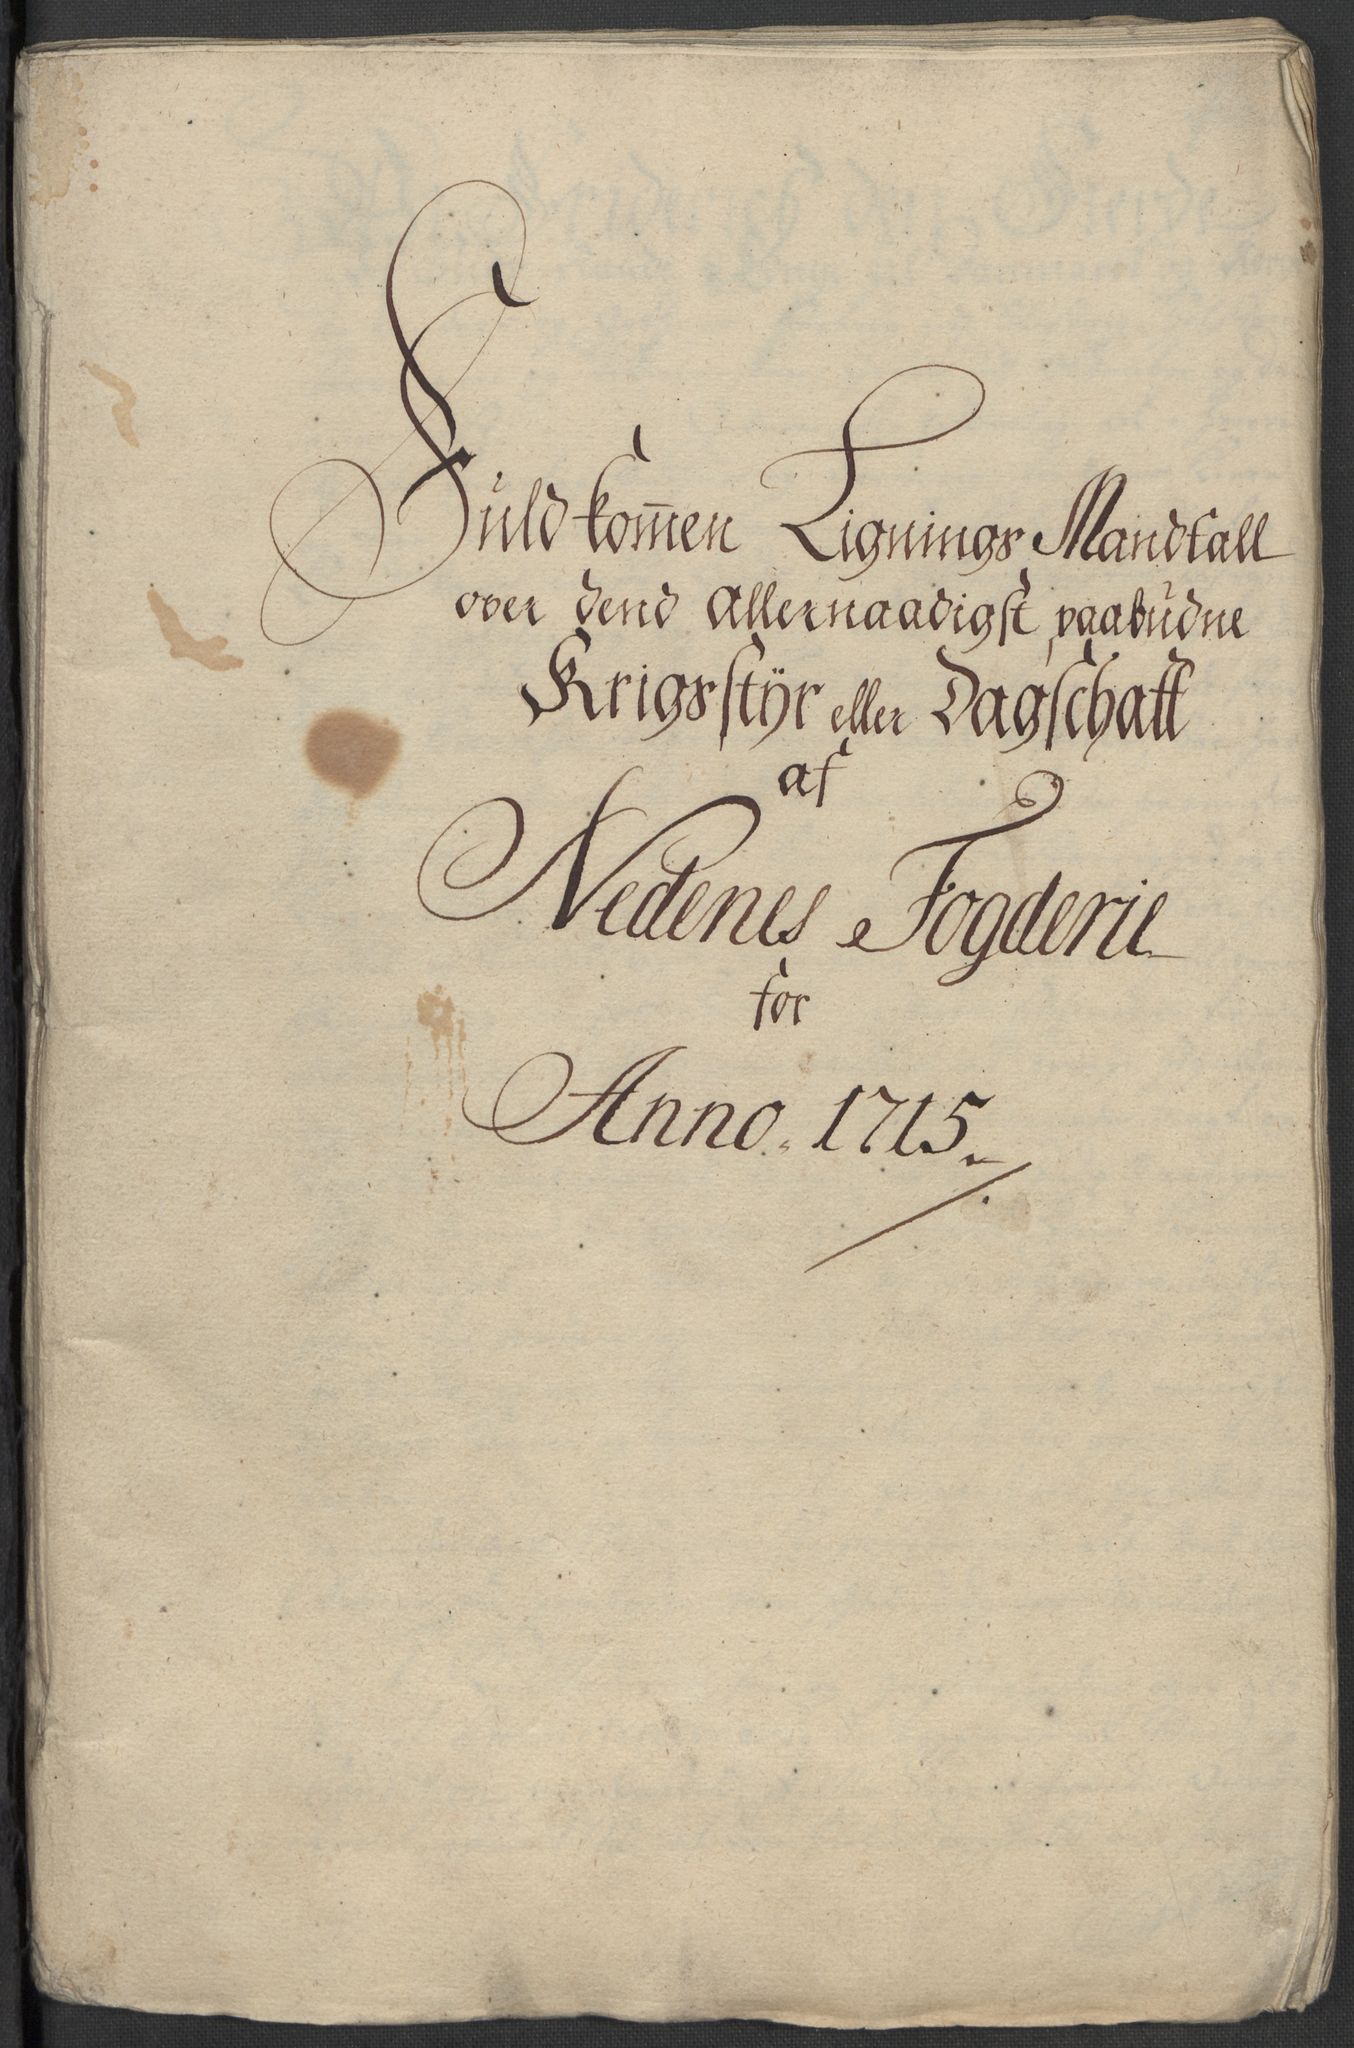 Fuldkom̅en Lignings Mandtall
over dend Allernaadigst paabudne
Krigsstÿr eller Dagschatt
af
Nedenes Fogderie
for
Anno. 1715.